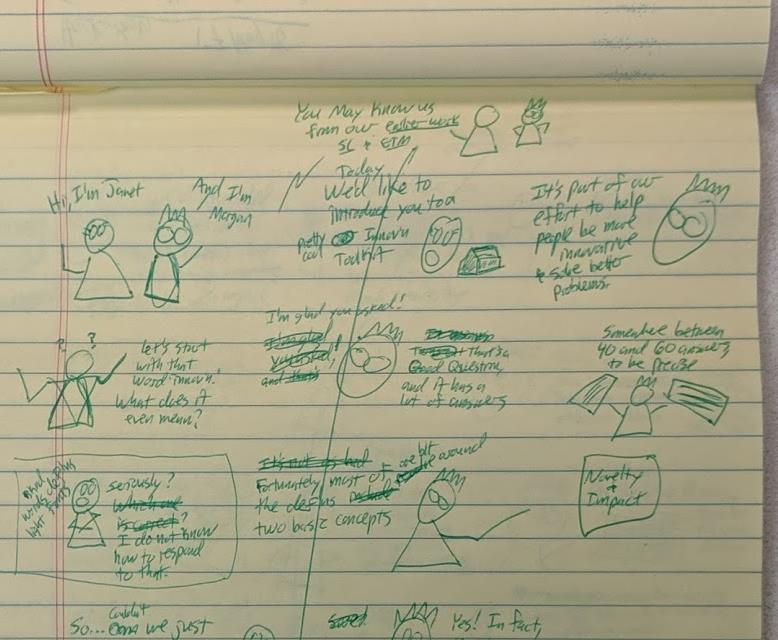 You May Know us
from our earlier work
SL & ETM
Hi, I'm Janet
And I'm
Morgan
Today
We'd like to
introduce you to a
pretty
cool
Innov'n
Toolkit
It's part of our
effort to help
people be more
innovative
& solve better
problems.
? ?
let's start
with that
word innov'n.
What does it
even mean?
I'm glad you asked!
I'm glad
you asked!
and that's
that's a
Good Question,
and it has a
lot of answers
Somewhere between
40 and 60 answers,
to be precise
seriously?
Which one
is correct?
I do not know
how to respond
to that.
It's not as bad
fortunately most of
the defins include
are built
around
two basic concepts
Novelty
+
Impact
So... Couldn't
we just
Yes! In fact,